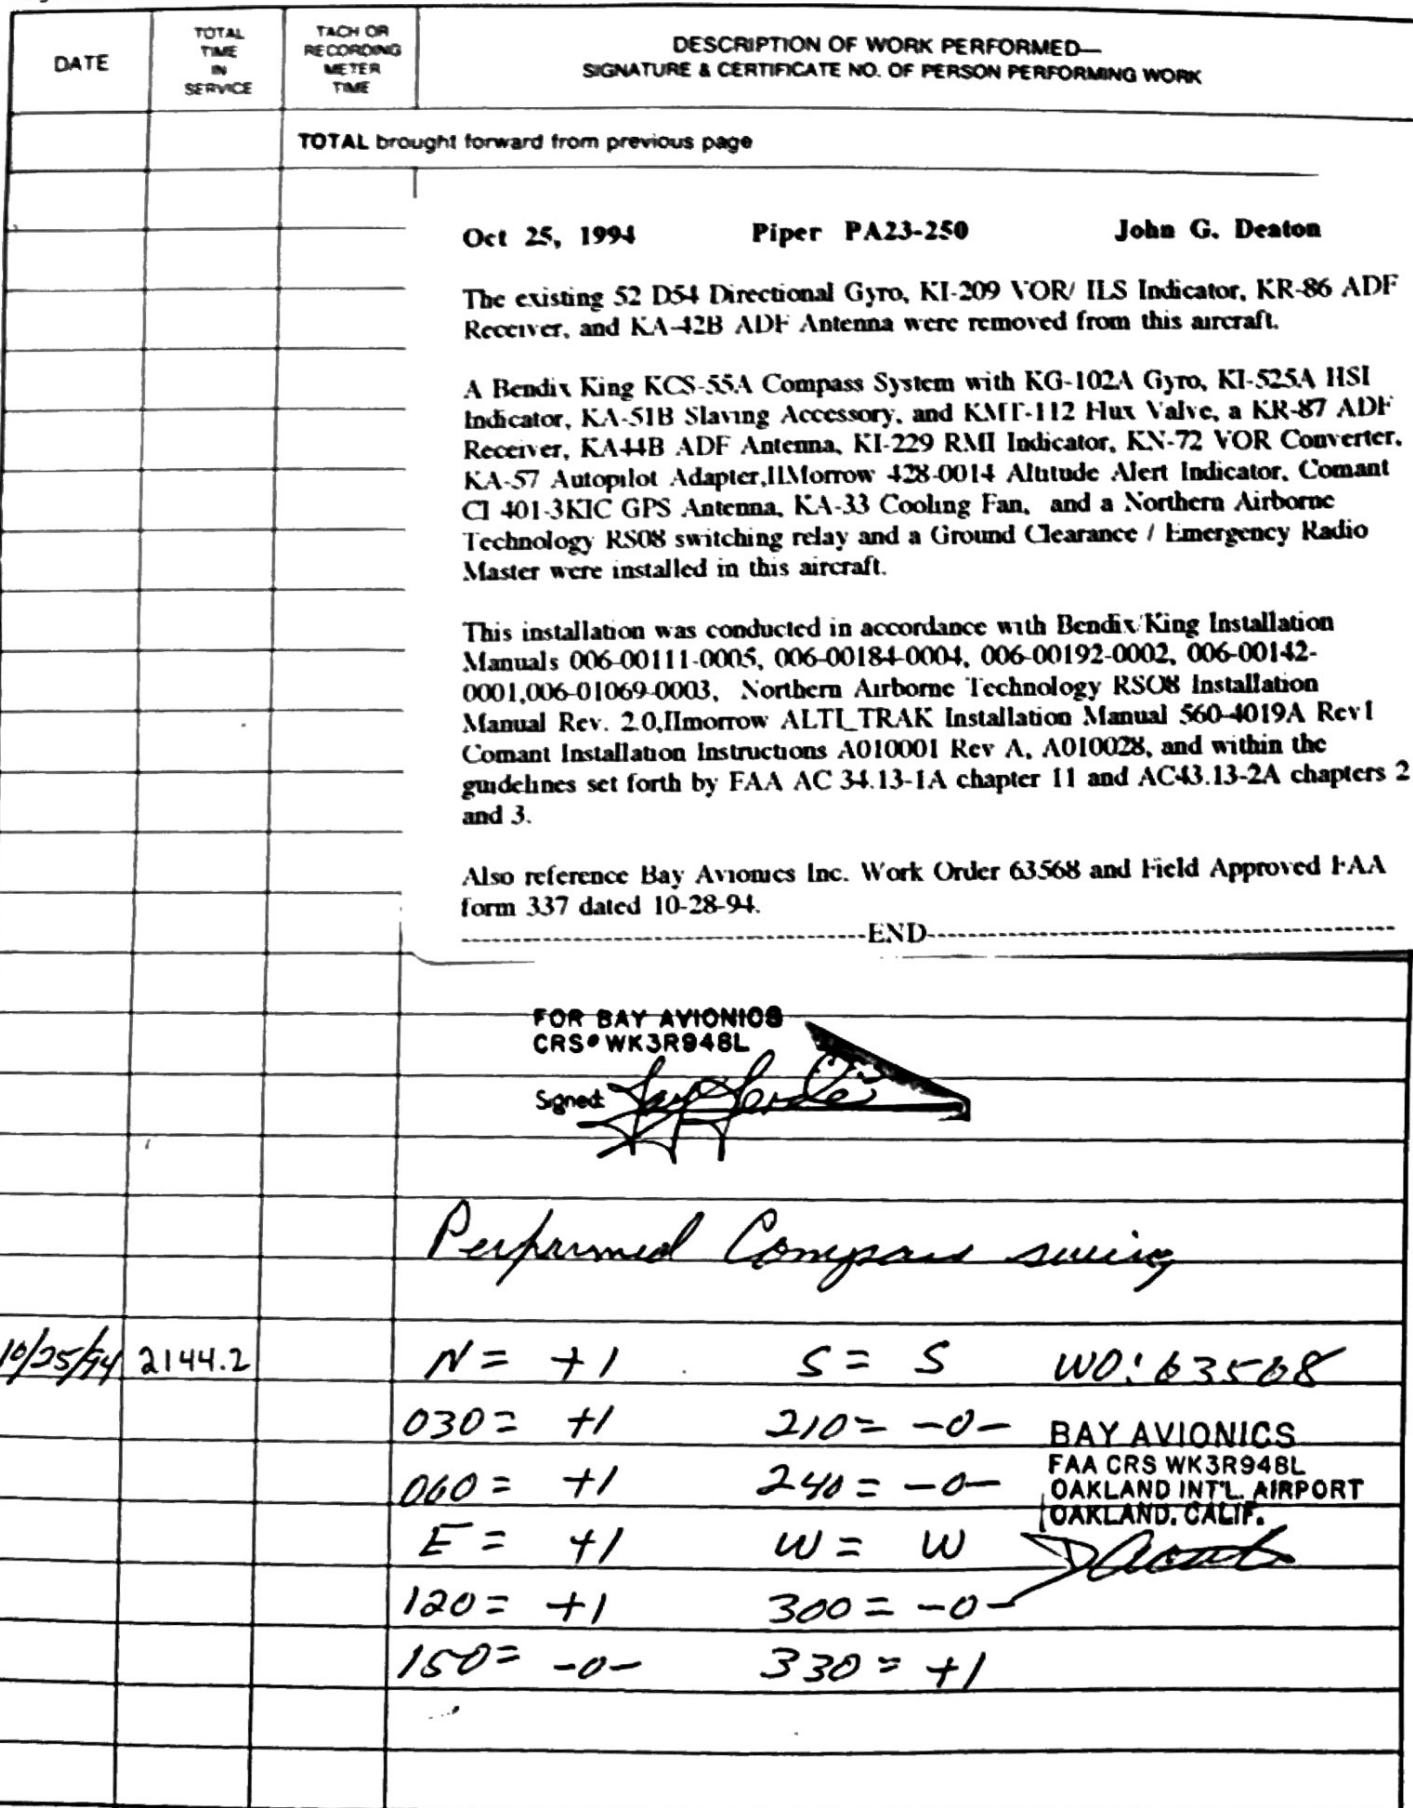 DATE
TOTAL
TIME
IN
SERVICE
TACH OR
RECORDING
METER
TIME
DESCRIPTION OF WORK PERFORMED—
SIGNATURE & CERTIFICATE NO. OF PERSON PERFORMING WORK
TOTAL brought forward from previous page
Oct 25, 1994 Piper PA23-250 John G. Deaton
The existing 52 D54 Directional Gyro, KI-209 VOR/ ILS Indicator, KR-86 ADF
Receiver, and KA-42B ADF Antenna were removed from this aircraft.
A Bendix King KCS-55A Compass System with KG-102A Gyro, KI-525A HSI
Indicator, KA-51B Slaving Accessory, and KMT-112 Flux Valve, a KR-87 ADF
Receiver, KA44B ADF Antenna, KI-229 RMI Indicator, KN-72 VOR Converter,
KA-57 Autopilot Adapter,IIMorrow 428-0014 Altitude Alert Indicator, Comant
CI 401-3KIC GPS Antenna, KA-33 Cooling Fan, and a Northern Airborne
Technology RS08 switching relay and a Ground Clearance / Emergency Radio
Master were installed in this aircraft.
This installation was conducted in accordance with Bendix/King Installation
Manuals 006-00111-0005, 006-00184-0004, 006-00192-0002, 006-00142-
0001,006-01069-0003, Northern Airborne Technology RSO8 Installation
Manual Rev. 2.0,IImorrow ALTI_TRAK Installation Manual 560-4019A Rev1
Comant Installation Instructions A010001 Rev A, A010028, and within the
guidelines set forth by FAA AC 34.13-1A chapter 11 and AC43.13-2A chapters 2
and 3.
Also reference Bay Avionics Inc. Work Order 63568 and Field Approved FAA
form 337 dated 10-28-94.
---------------------------------------END---------------------------------------------
FOR BAY AVIONICS
CRS# WK3R948L
Signed:
Performed Compass swing
10/25/94 2144.2 N = +1 S = S WO: 63568
030 = +1 210 = -0-
BAY AVIONICS
FAA CRS WK3R948L
060 = +1 240 = -0-
OAKLAND INT'L. AIRPORT
OAKLAND, CALIF.
E = +1 W = W
120 = +1 300 = -0-
150 = -0- 330 = +1